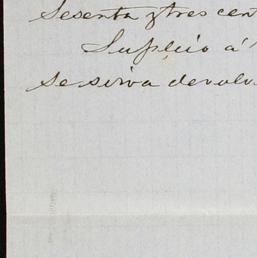 Sesenta y tres cent
Suplico á
se sirva devolv